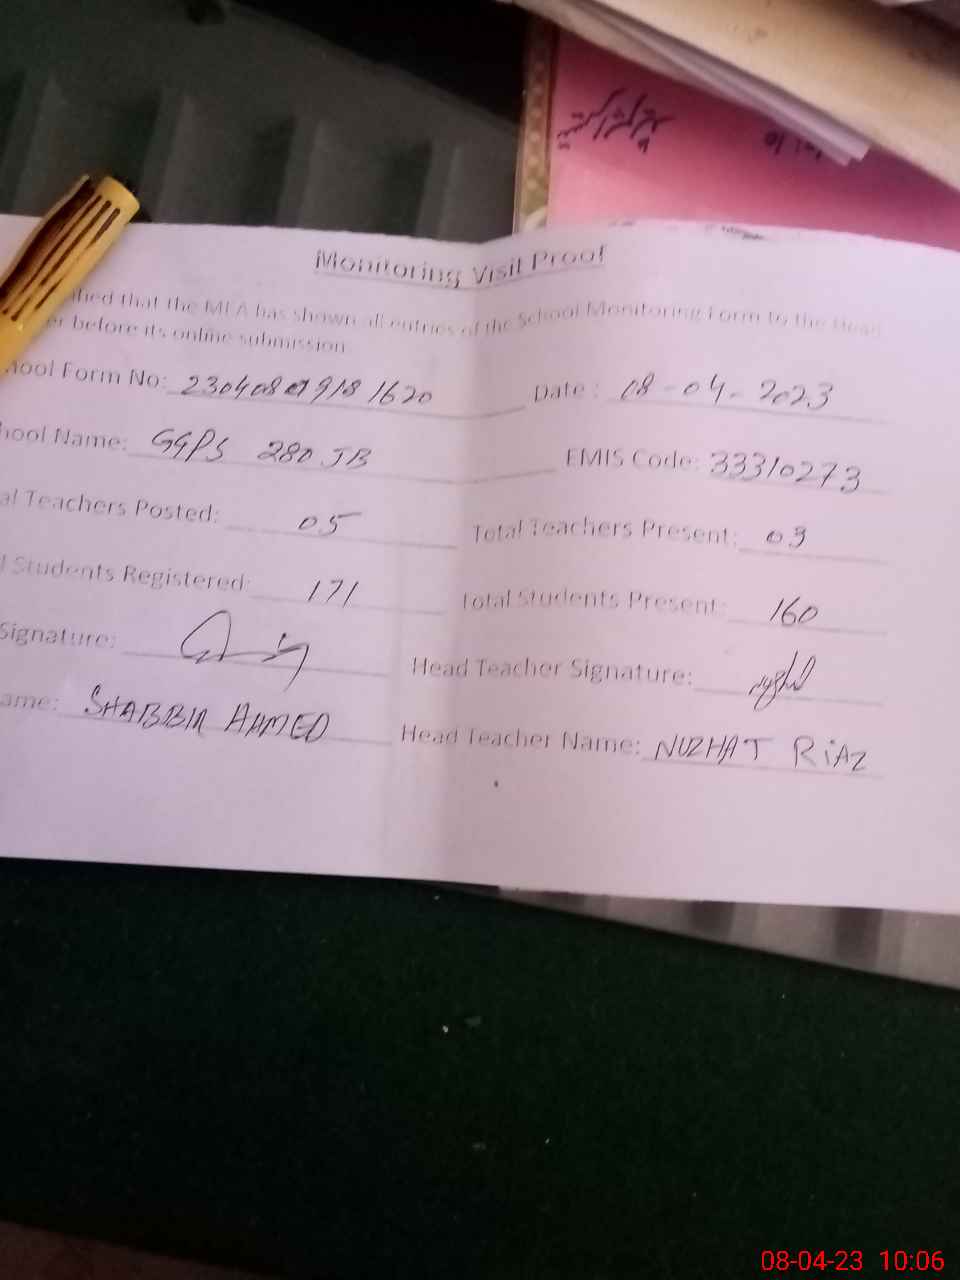 Monitoring Visit Proof
that the MEA has shown all entries of the School Monitoring Form to the Head
before its online submission
Form No: Date : 08-04-2023
Name: GGPS 280 JB EMIS Code: 33310273
Teachers Posted: 05 Total Teachers Present: 03
Students Registered: 171 Total Students Present: 160
Signature: Head Teacher Signature:
SHABBIR AHMED Head Teacher Name: NUZHAT RiAZ
08-04-23 10:06